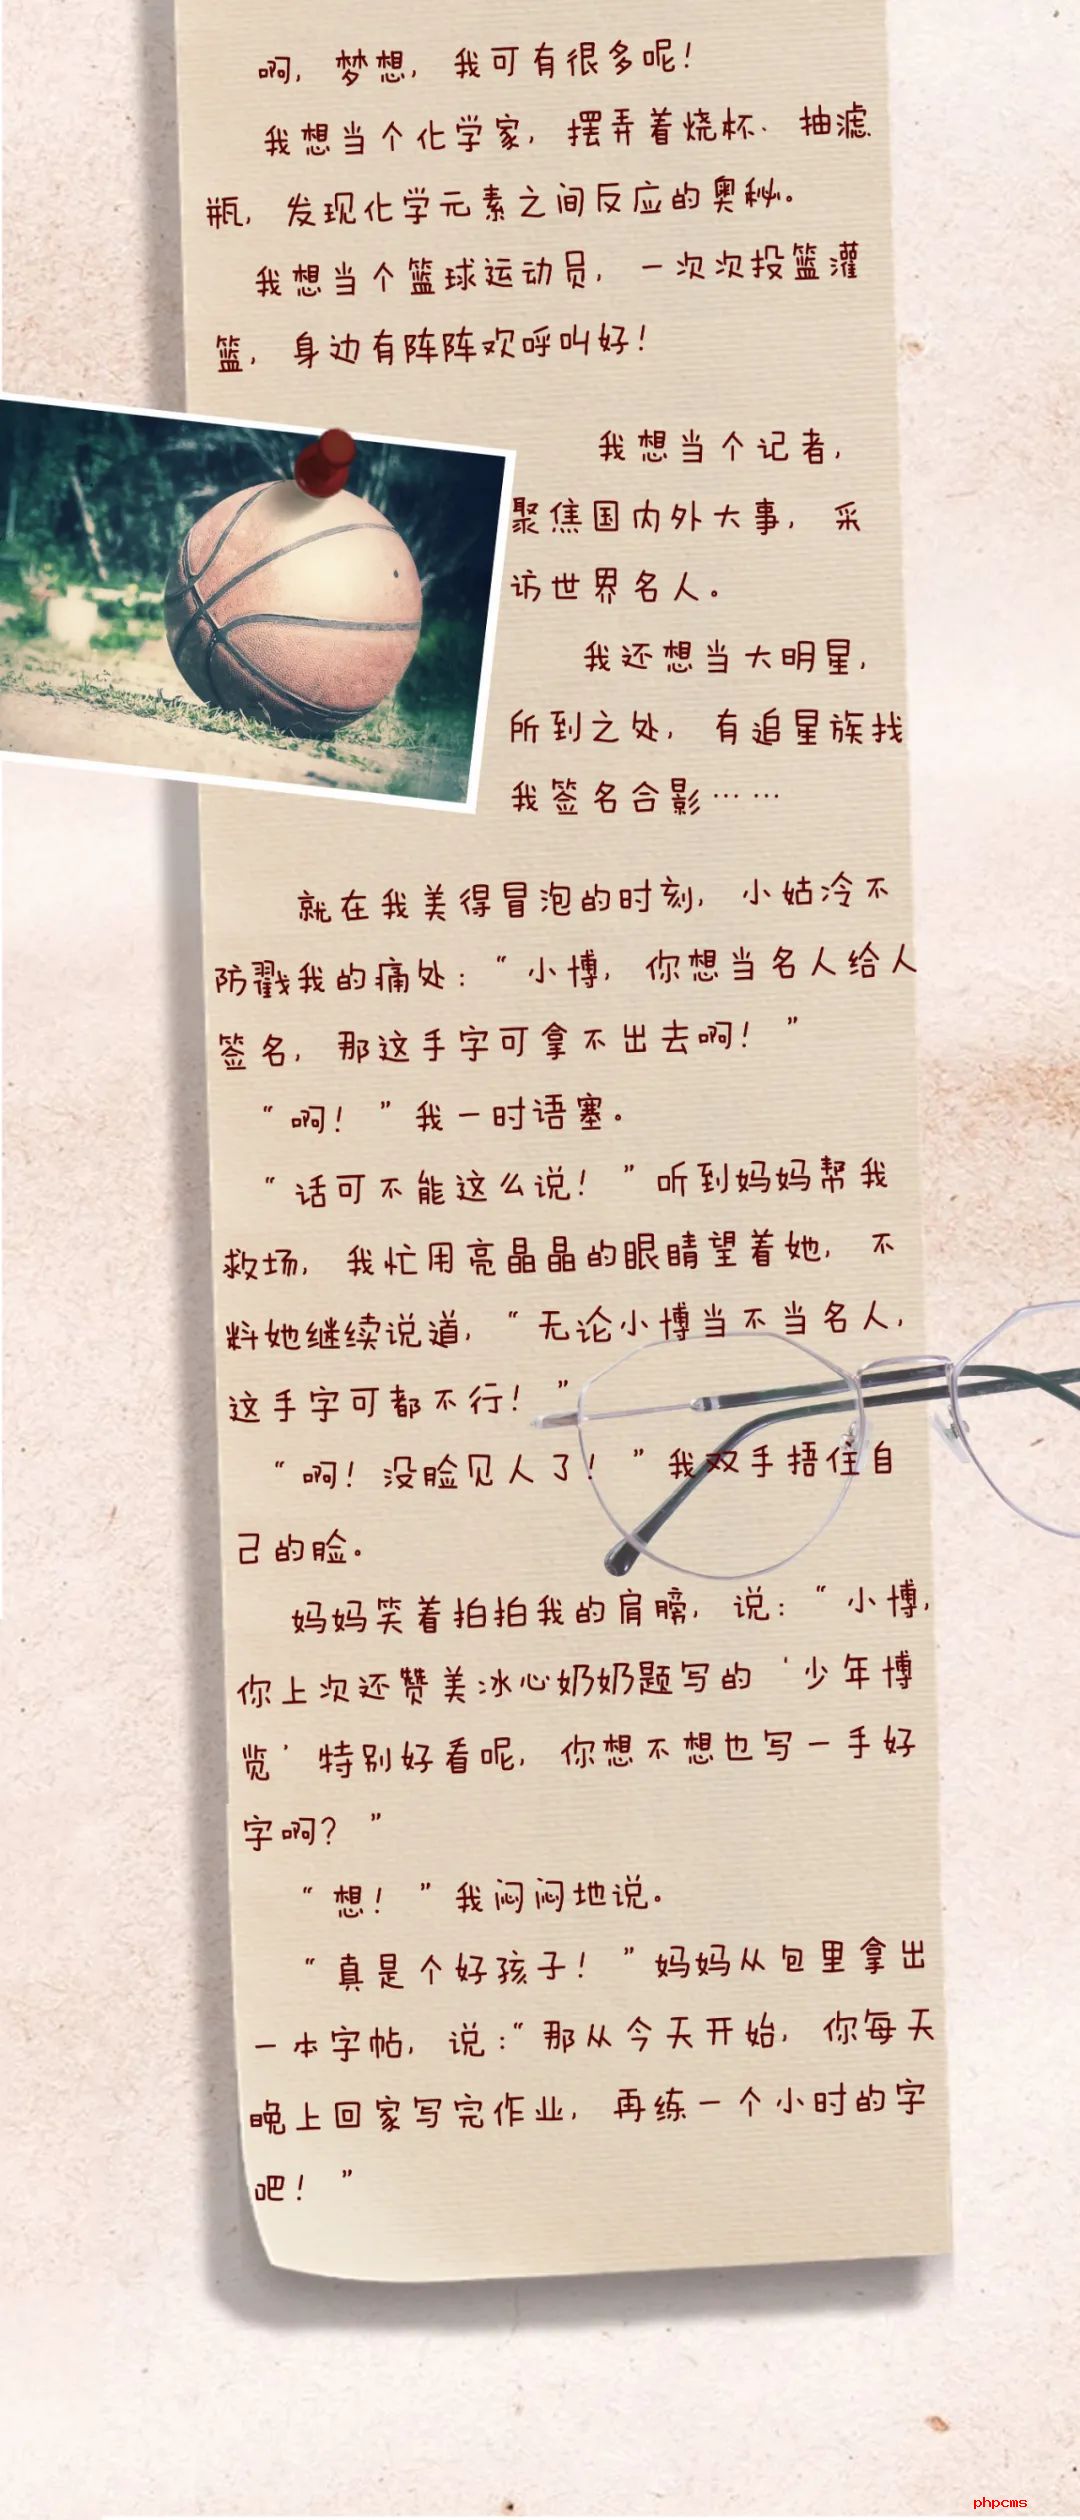 啊，梦想，我可有很多呢！
我想当个化学家，摆弄着烧杯、抽滤
瓶，发现化学元素之间反应的奥秘。
我想当个篮球运动员，一次次投篮灌
篮，身边有阵阵欢呼叫好！
我想当个记者，
聚焦国内外大事，采
访世界名人。
我还想当大明星，
所到之处，有追星族找
我签名合影……
就在我美得冒泡的时刻，小姑冷不
防戳我的痛处：“小博，你想当名人给人
签名，那这手字可拿不出去啊！”
“啊！”我一时语塞。
“话可不能这么说！”听到妈妈帮我
救场，我忙用亮晶晶的眼睛望着她，不
料她继续说道，“无论小博当不当名人，
这手字可都不行！”
“啊！没脸见人了！”我双手捂住自
己的脸。
妈妈笑着拍拍我的肩膀，说：“小博，
你上次还赞美冰心奶奶题写的‘少年博
览’特别好看呢，你想不想也写一手好
字啊？”
“想！”我闷闷地说。
“真是个好孩子！”妈妈从包里拿出
一本字帖，说：“那从今天开始，你每天
晚上回家写完作业，再练一个小时的字
吧！”
phpcms